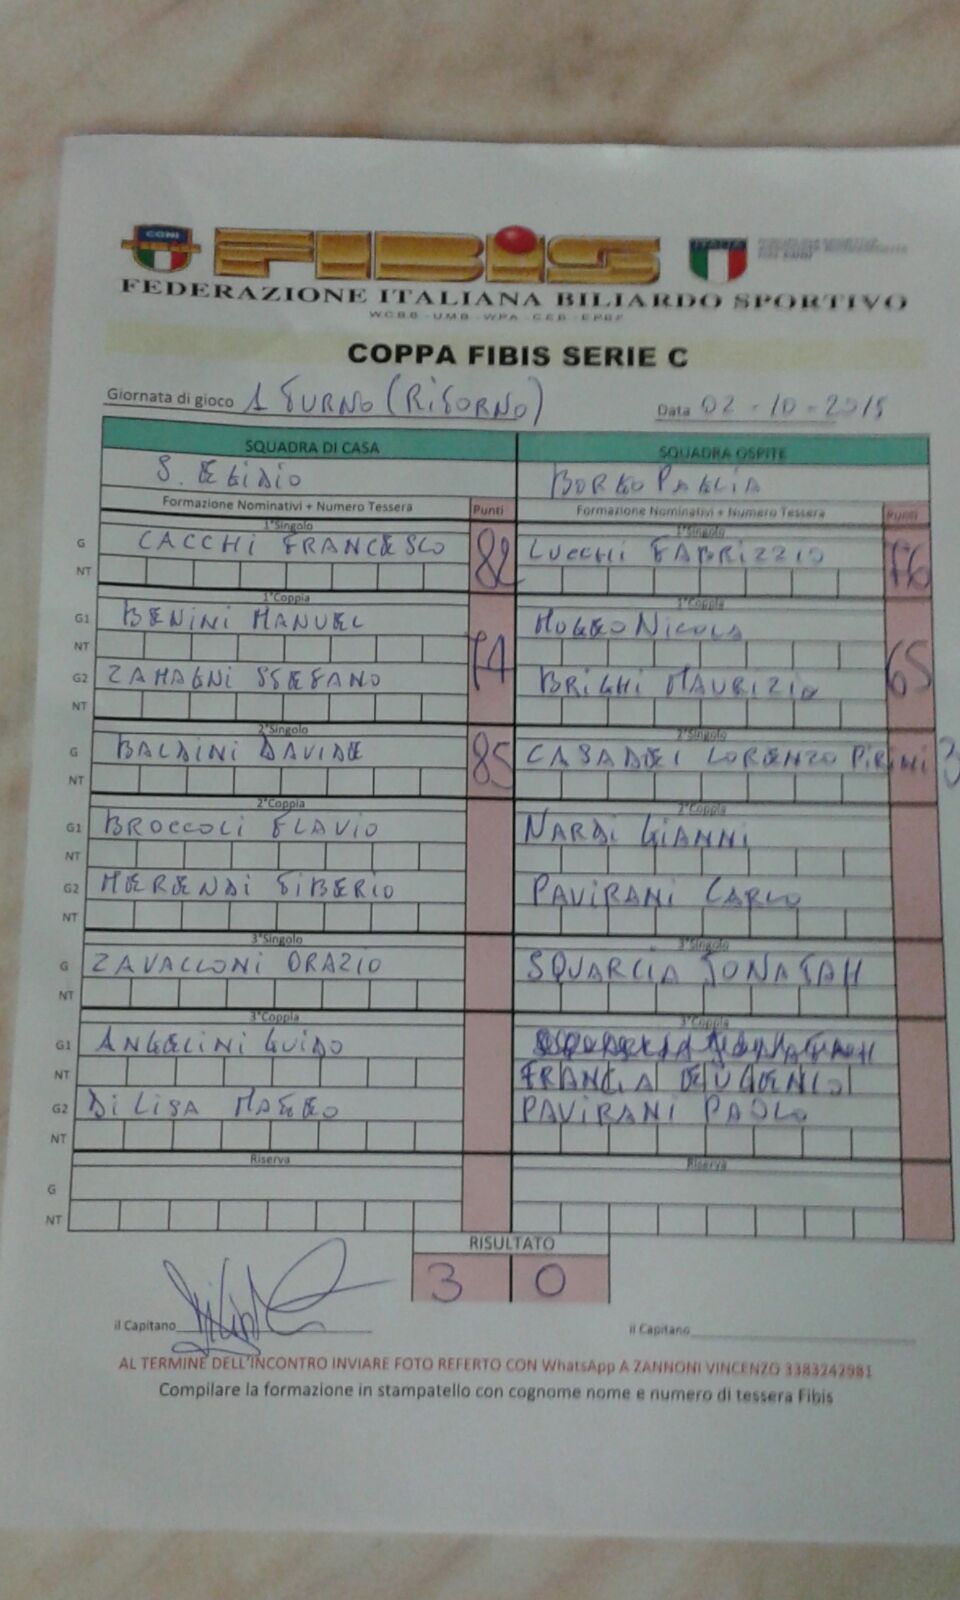 CONI FIBIS ITALIA
FEDERAZIONE ITALIANA BILIARDO SPORTIVO
WCBS - UMB - WPA - CEB - EPBF
COPPA FIBIS SERIE C
Giornata di gioco 1 TURNO (RITORNO) Data 02-10-2015
SQUADRA DI CASA SQUADRA OSPITE
S. EGIDIO BORGO PAGLIA
Formazione Nominativi + Numero Tessera Punti Formazione Nominativi + Numero Tessera Punti
1°Singolo 1°Singolo
G CACCHI FRANCESCO 82 LUCCHI FABRIZZIO 76
NT
1°Coppia 1°Coppia
G1 BENINI MANUEL NICOLA
NT 74 65
G2 ZAMAGNI STEFANO BRIGHI MAURIZIO
NT
2°Singolo 2°Singolo
G BALDINI DAVIDE 85 CASADEI LORENZO PIRINI 3
NT
2°Coppia 2°Coppia
G1 BROCCOLI FLAVIO NARDI GIANNI
NT
G2 MERENDI TIBERIO PAVIRANI CARLO
NT
3°Singolo 3°Singolo
G ZAVALLONI ORAZIO SQUARCIA JONATAH
NT
3°Coppia 3°Coppia
G1 ANGELINI GUIDO
NT FRANCIA EUGENIO
G2 DI LISA MATTEO PAVIRANI PAOLO
NT
Riserva Riserva
G
NT
RISULTATO
3 0
il Capitano il Capitano
AL TERMINE DELL'INCONTRO INVIARE FOTO REFERTO CON WhatsApp A ZANNONI VINCENZO 3383242981
Compilare la formazione in stampatello con cognome nome e numero di tessera Fibis